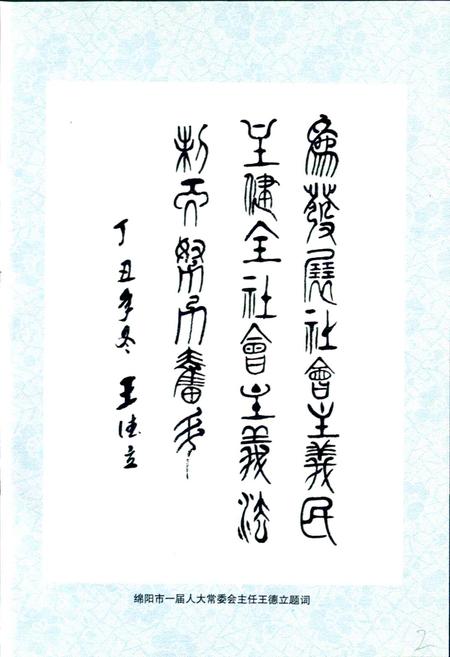 為發展社會主義民
主健全社會主義法
制而努力奮斗
丁丑年冬 王德立
绵阳市一届人大常委会主任王德立题词
2